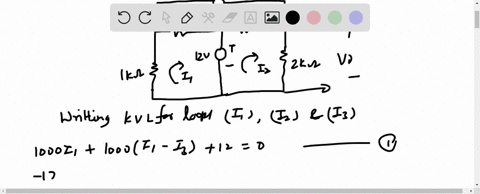 12V
1kΩ
I₁
I₂
2kΩ
Writing KVL for loops (I₁), (I₂) & (I₃)
1000I₁ + 1000(I₁ - I₃) + 12 = 0 ①
-12